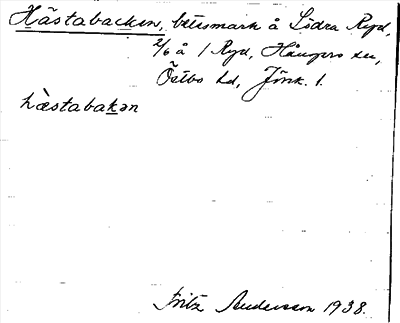 Hästabacken, betesmark å Södra Ryd,
2/6 å 1 Ryd, Hångers sn,
Östbo hd, Jönk. l.
hæ̀stabakən
Fritz Andersson 1938.